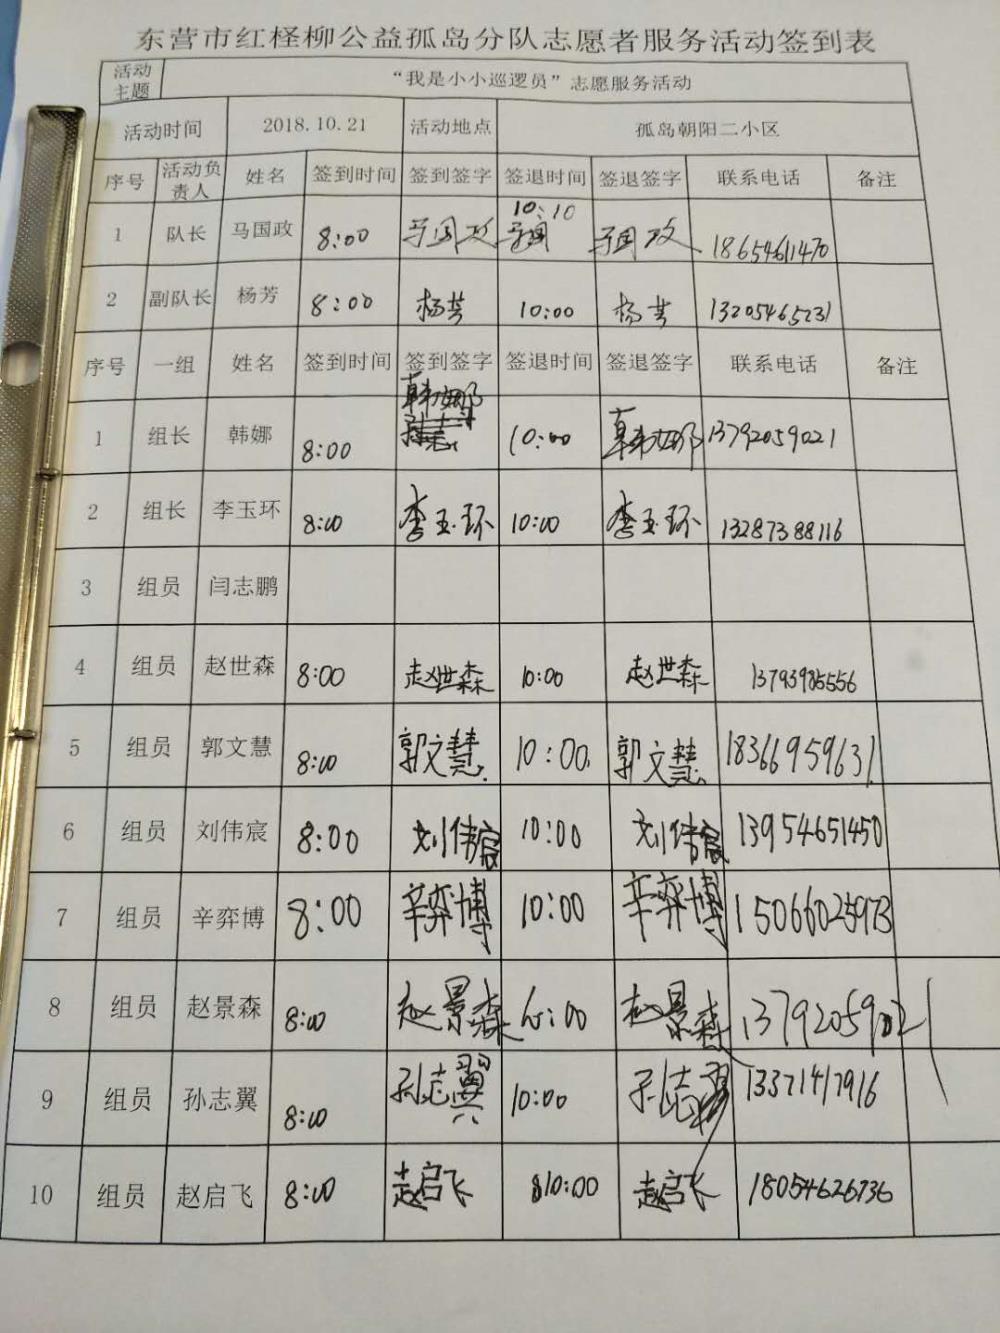 东营市红柽柳公益孤岛分队志愿者服务活动签到表
活动主题 “我是小小巡逻员”志愿服务活动
活动时间 2018.10.21 活动地点 孤岛朝阳二小区
序号 活动负责人 姓名 签到时间 签到签字 签退时间 签退签字 联系电话 备注
1 队长 马国政 8:00 马国政 10:10 马国政 18654611470
2 副队长 杨芳 8:00 杨芳 10:00 杨芳 13205465231
序号 一组 姓名 签到时间 签到签字 签退时间 签退签字 联系电话 备注
1 组长 韩娜 8:00 韩娜 10:00 韩娜 13792059021
2 组长 李玉环 8:00 李玉环 10:00 李玉环 13287388116
3 组员 闫志鹏
4 组员 赵世森 8:00 赵世森 10:00 赵世森 13793985556
5 组员 郭文慧 8:00 郭文慧 10:00 郭文慧 18366959631
6 组员 刘伟宸 8:00 刘伟宸 10:00 刘伟宸 13954651450
7 组员 辛弈博 8:00 辛弈博 10:00 辛弈博 15066025973
8 组员 赵景森 8:00 赵景森 10:00 赵景森 13792059021
9 组员 孙志翼 8:00 孙志翼 10:00 孙志翼 13371417916
10 组员 赵启飞 8:00 赵启飞 10:00 赵启飞 18054626736